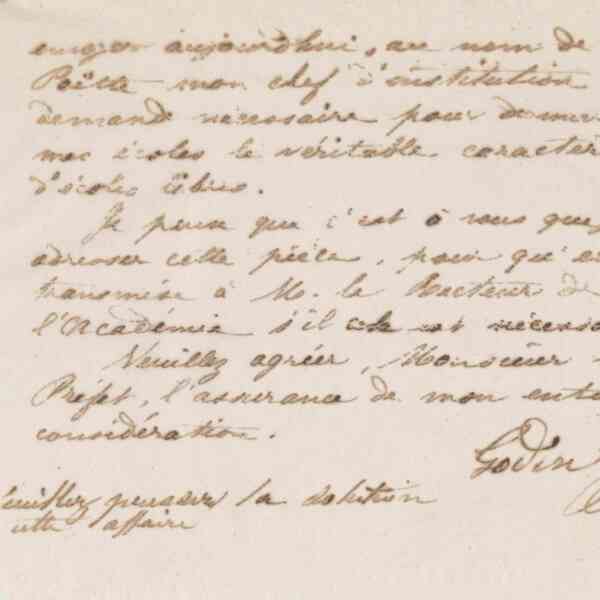 aujourd'hui, au nom de
Poëtte mon chef d'institution
demande nécessaire pour donner
mes écoles le véritable caractèr
d'écoles libres.
Je pense que c'est à vous que
adresser cette pièce, pour qu'
transmise à M. le Recteur de
l'Académie s'il est nécess
Veuillez agréer, Monsieur
Préfet, l'assurance de mon enti
considération.
Godin
euillez presser la solution
ette affaire